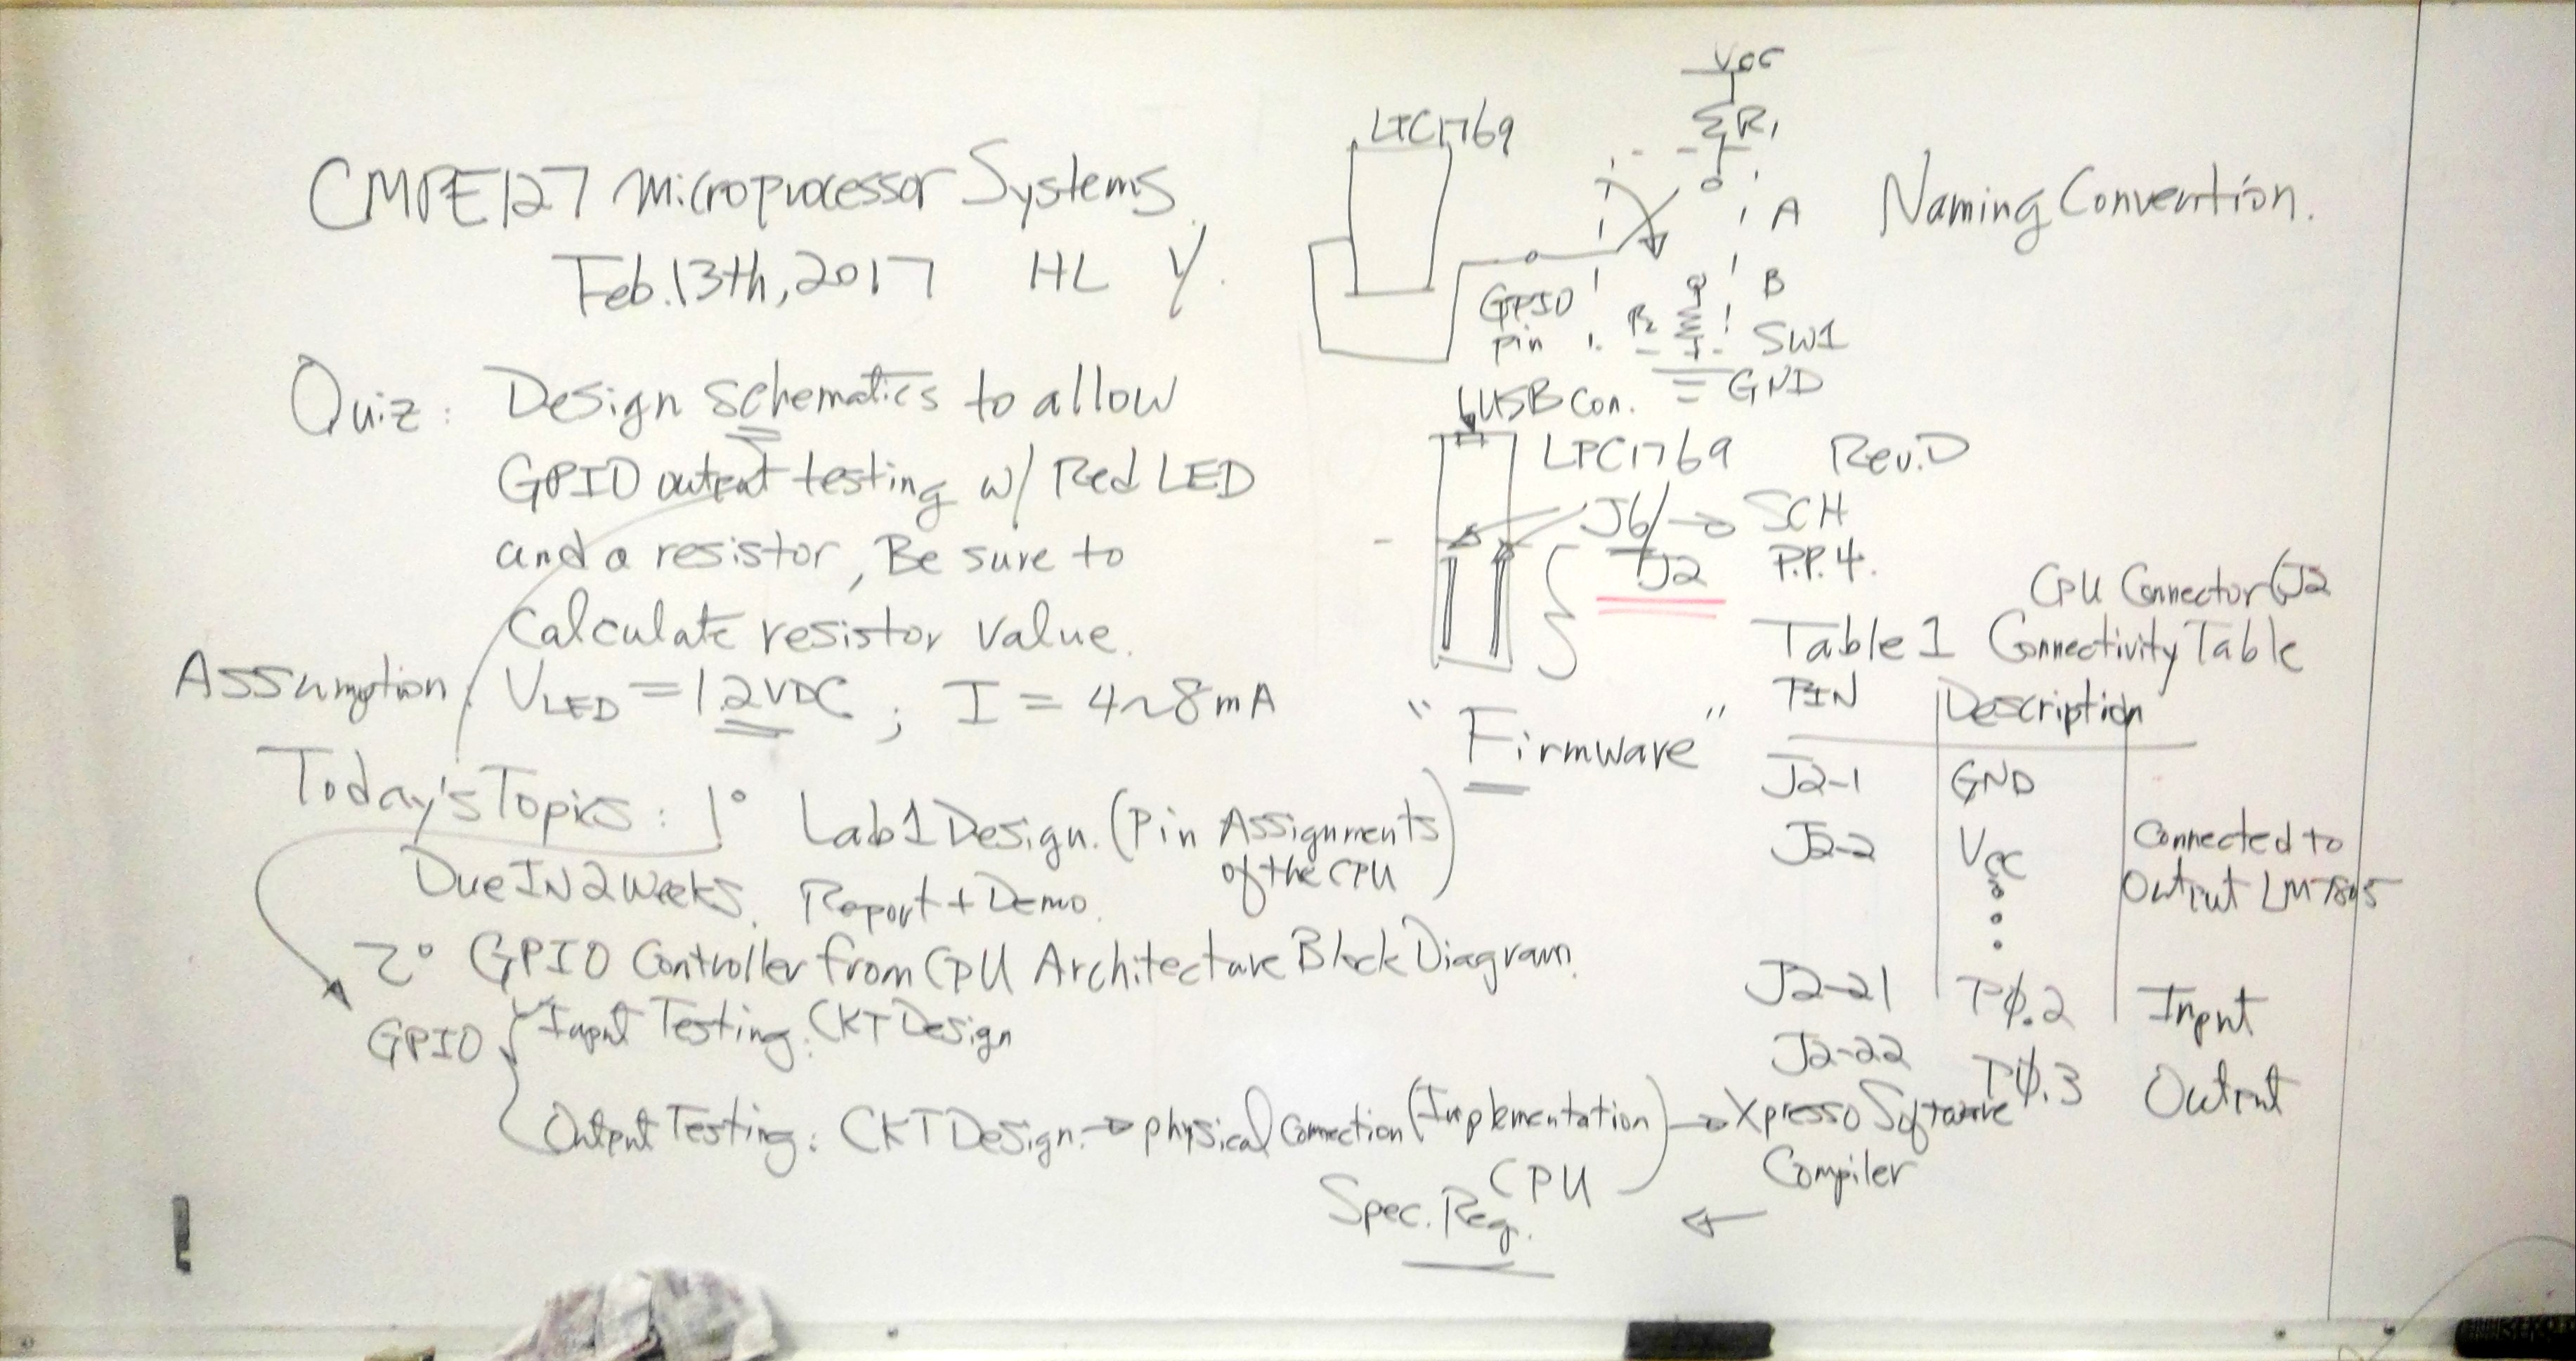 CMPE127 Microprocessor Systems.
Feb.13th, 2017 HL Y.
Quiz: Design schematics to allow
GPIO output testing w/ Red LED
and a resistor, Be sure to
Calculate resistor value.
Assumption: VLED = 1.2VDC ; I = 4~8mA
Today's Topics: 1° Lab1 Design. (Pin Assignments
of the CPU)
Due IN 2 Weeks. Report + Demo.
2° GPIO Controller from CPU Architecture Block Diagram.
GPIO { Input Testing: CKT Design
Output Testing: CKT Design. → physical Connection (Implementation) → Xpresso Software
Compiler
CPU
Spec. Reg. ←
Vcc
R1
LPC1769
A
B
GPIO
pin
R2
SW1
GND
Naming Convention.
USB Con.
LPC1769 Rev.D
J6/ → SCH
J2 P.P.4.
"Firmware"
CPU Connector (J2
Table 1 Connectivity Table
PIN Description
J2-1 GND
J2-2 VCC Connected to
Output LM7805
J2-21 PØ.2 Input
J2-22 PØ.3 Output